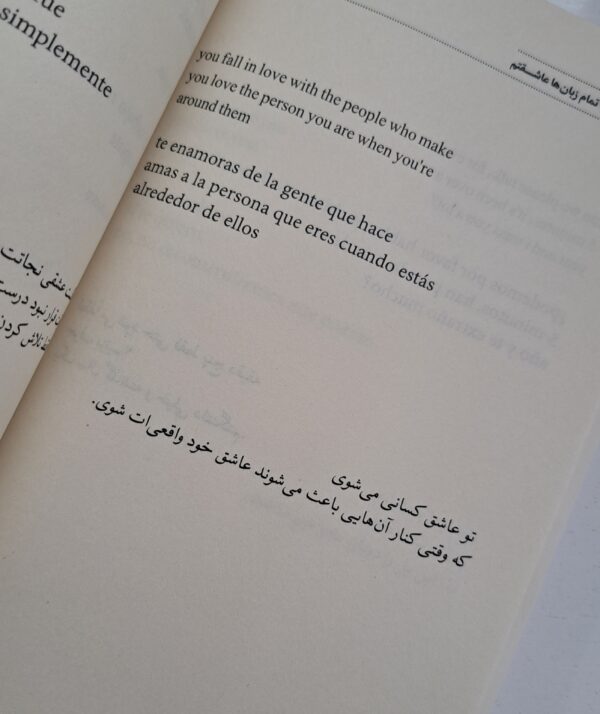 ue
simplemente
تمام زبان‌ها عاشقتم
you fall in love with the people who make
you love the person you are when you're
around them
te enamoras de la gente que hace
amas a la persona que eres cuando estás
alrededor de ellos
تو عاشق کسانی می‌شوی
که وقتی کنار آن‌هایی باعث می‌شوند عاشق خود واقعی‌ات شوی.
عشقی نجاتت
قرار نبود درست
تلاش کردن